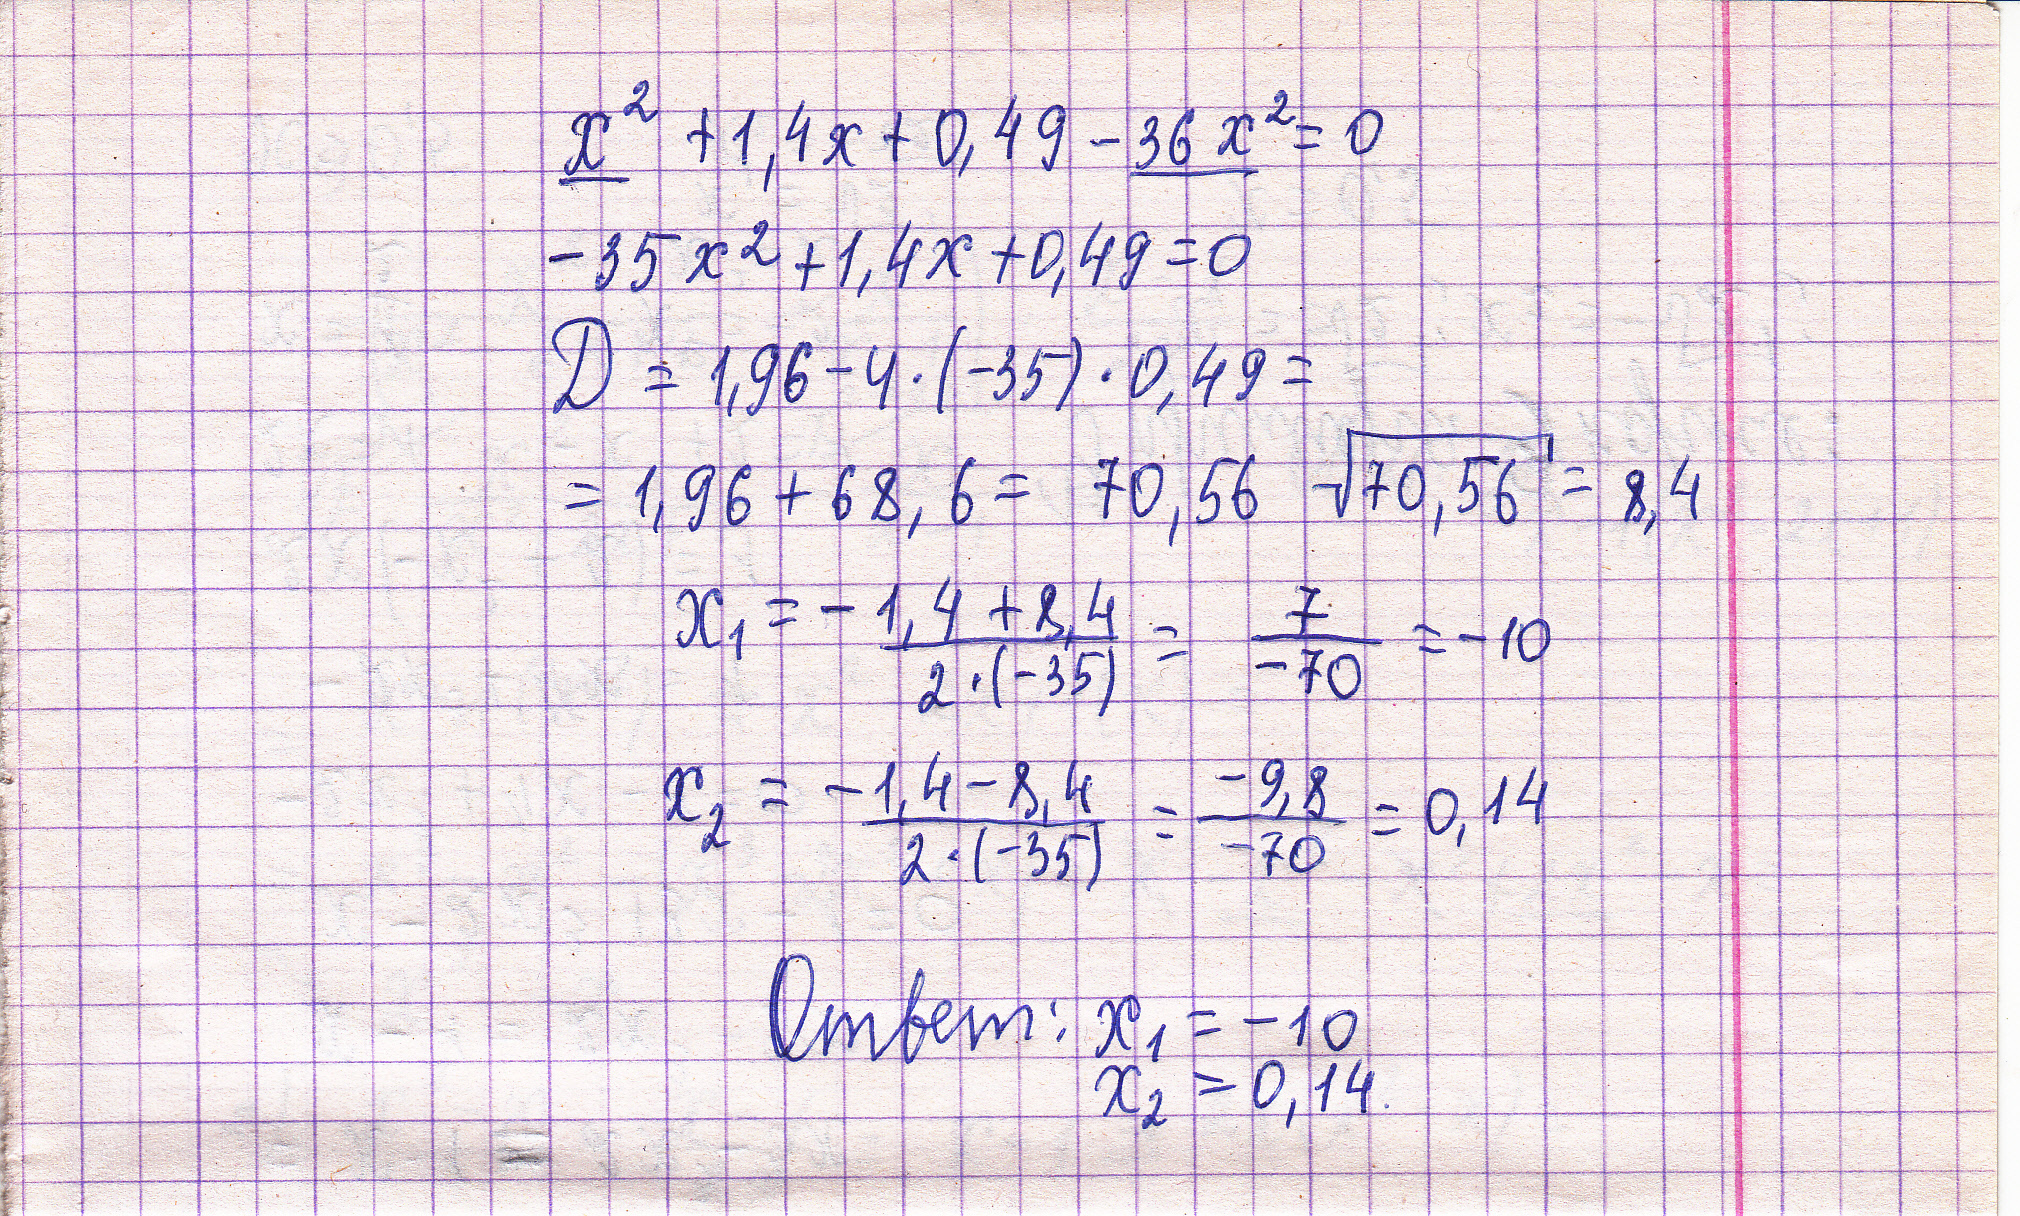 x² + 1,4x + 0,49 - 36x² = 0
-35x² + 1,4x + 0,49 = 0
D = 1,96 - 4 · (-35) · 0,49 =
= 1,96 + 68,6 = 70,56 √70,56 = 8,4
x₁ = (-1,4 + 8,4)/(2 · (-35)) = 7/(-70) = -10
x₂ = (-1,4 - 8,4)/(2 · (-35)) = (-9,8)/(-70) = 0,14
Ответ: x₁ = -10
x₂ = 0,14.